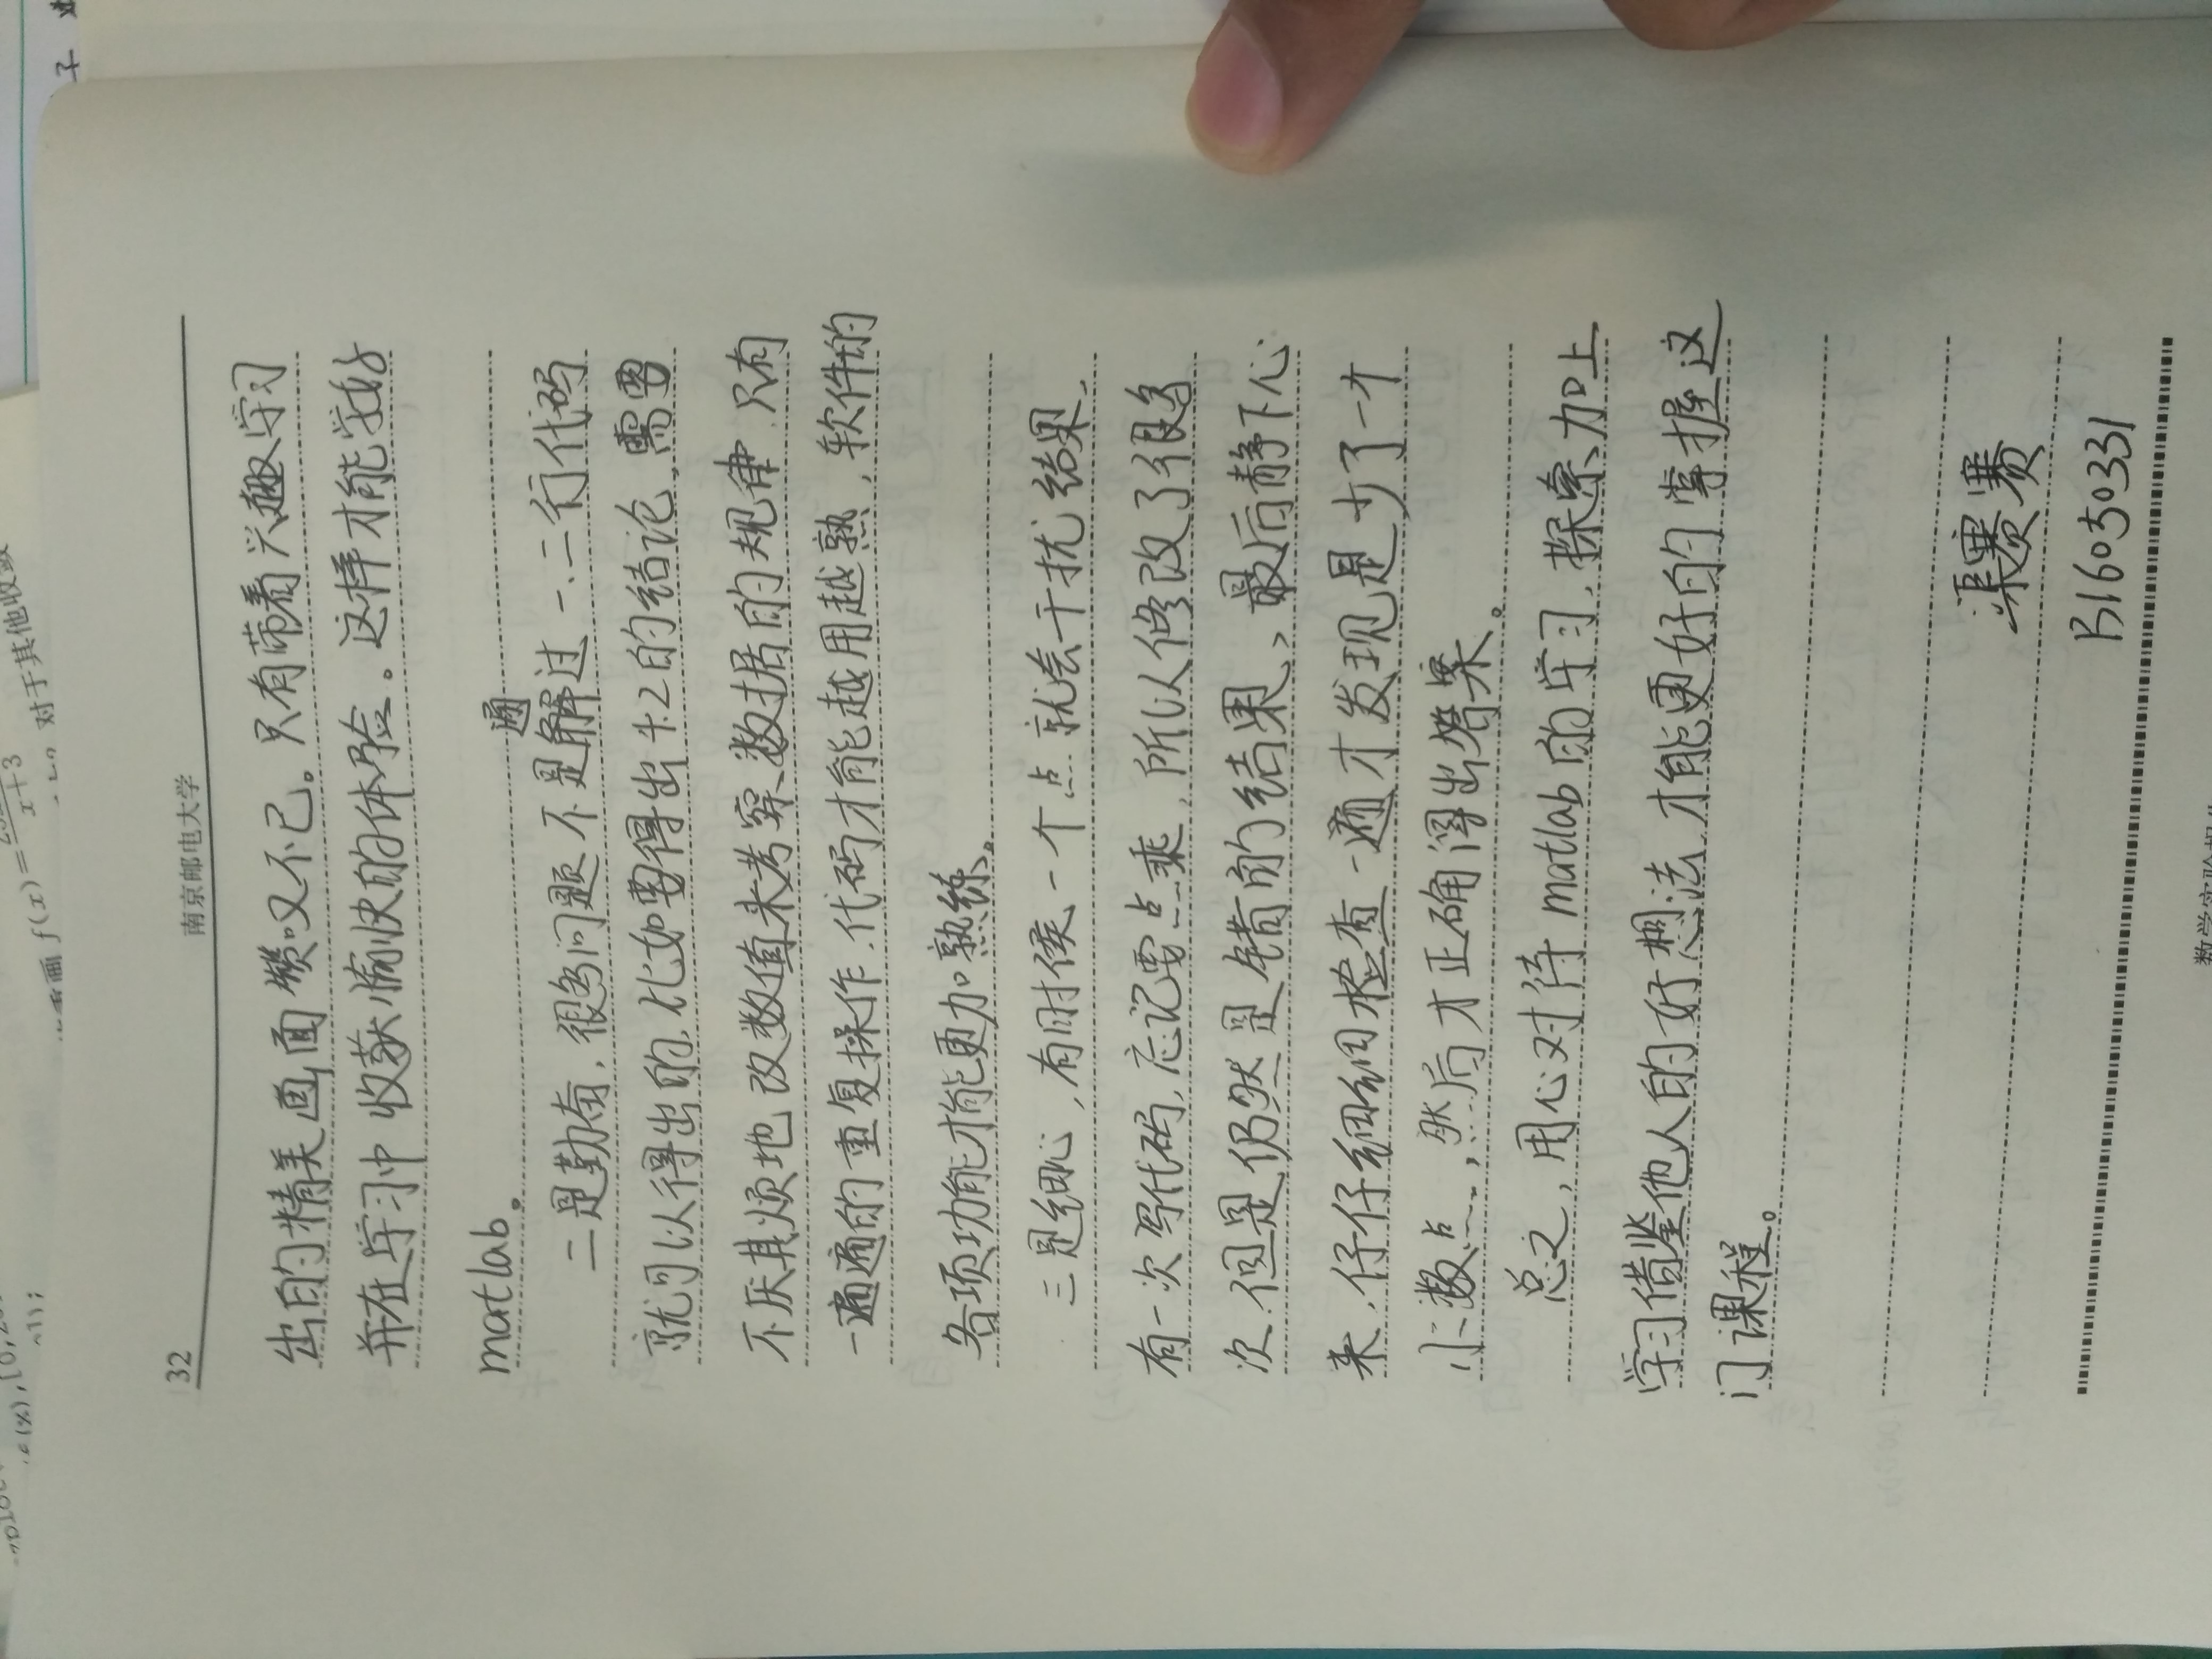 32
南京邮电大学
出的精美画面赞叹不已。只有带着兴趣学习
并在学习中收获愉快的体验。这样才能学好
matlab。
二是勤奋,很多问题不是通过一、二行代码
就可以得出的,比如要得出4.2的结论,需要
不厌其烦地改数值来考察数据的规律,只有
一遍遍的重复操作,代码才能越用越熟,软件的
各项功能才能更加熟练。
三是细心,有时候一个点就会干扰结果,
有一次写代码,忘记要点乘,所以修改了很多
次,但是仍然是错的结果,最后静下心
来,仔仔细细检查一遍才发现是少了一个
小数点,然后才正确得出答案。
总之,用心对待matlab的学习,探索加上
学习借鉴他人的好想法,才能更好的掌握这
门课程。
渠赛赛
B16050331
f(x)=
x+3
对于其他收敛